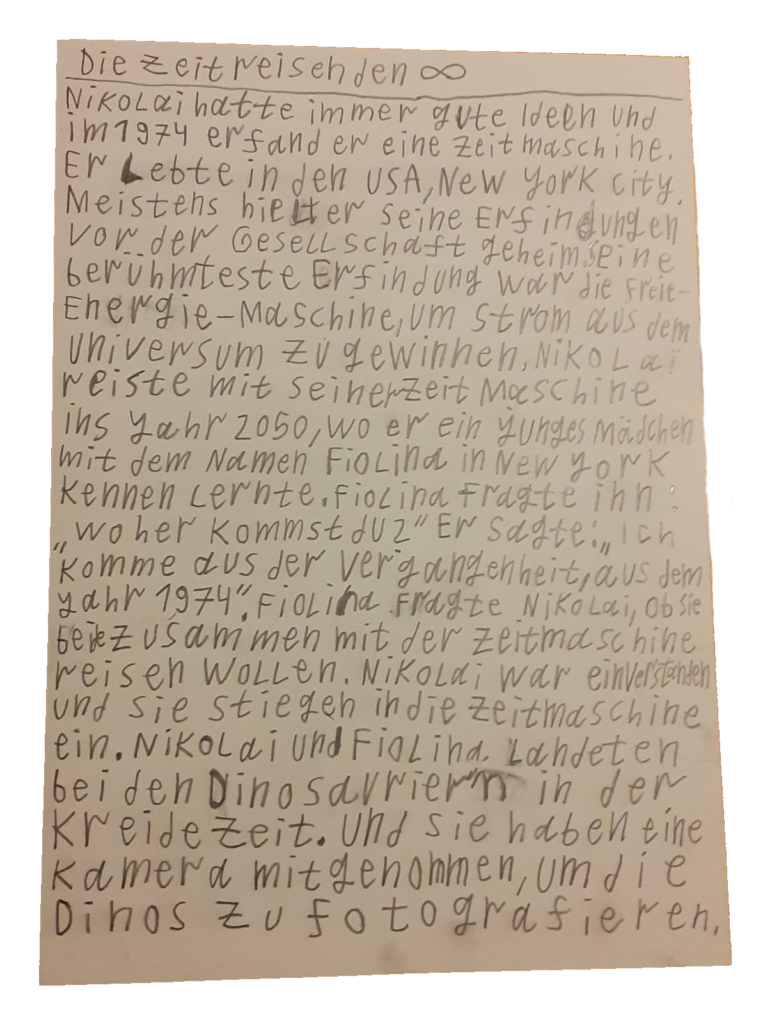 Die Zeitreisenden ∞
Nikolai hatte immer gute Ideen und
im 1974 erfand er eine Zeitmaschine.
Er Lebte in den USA, New York City.
Meistens hielt er seine Erfindungen
vor der Gesellschaft geheim. Seine
berühmteste Erfindung war die Freie-
Energie-Maschine, um Strom aus dem
Universum zu gewinnen. Nikolai
reiste mit seiner Zeitmaschine
ins Jahr 2050, wo er ein junges Mädchen
mit dem Namen Fiolina in New York
kennen lernte. Fiolina fragte ihn:
„Woher kommst du?" Er sagte: „Ich
komme aus der Vergangenheit, aus dem
Jahr 1974". Fiolina fragte Nikolai, ob sie
beide zusammen mit der Zeitmaschine
reisen wollen. Nikolai war einverstanden
und sie stiegen in die Zeitmaschine
ein. Nikolai und Fiolina landeten
bei den Dinosauriern in der
Kreidezeit. Und sie haben eine
Kamera mitgenommen, um die
Dinos zu fotografieren.